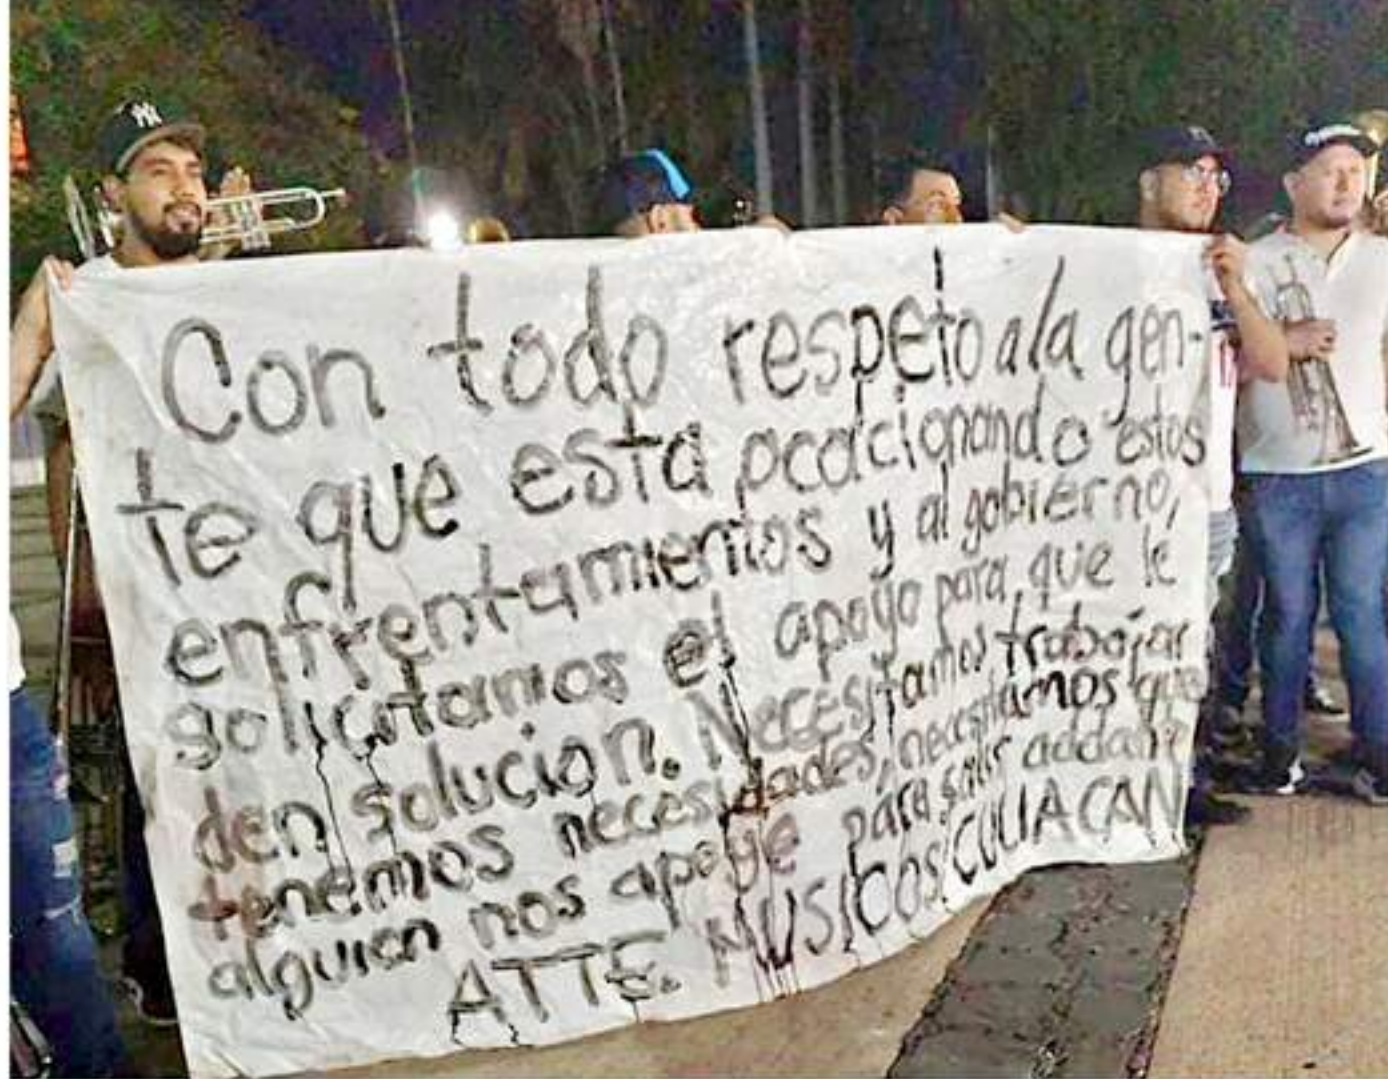 NY
Con todo respeto a la gen-
te que esta pcacionando estos
enfrentamientos y al gobierno,
solicitamos el apoyo para que le
den solucion. Necesitamos trabajar
tenemos necesidades, necesitamos que
alguien nos apoye para salir addante
ATTE. MUSICOS CULIACAN